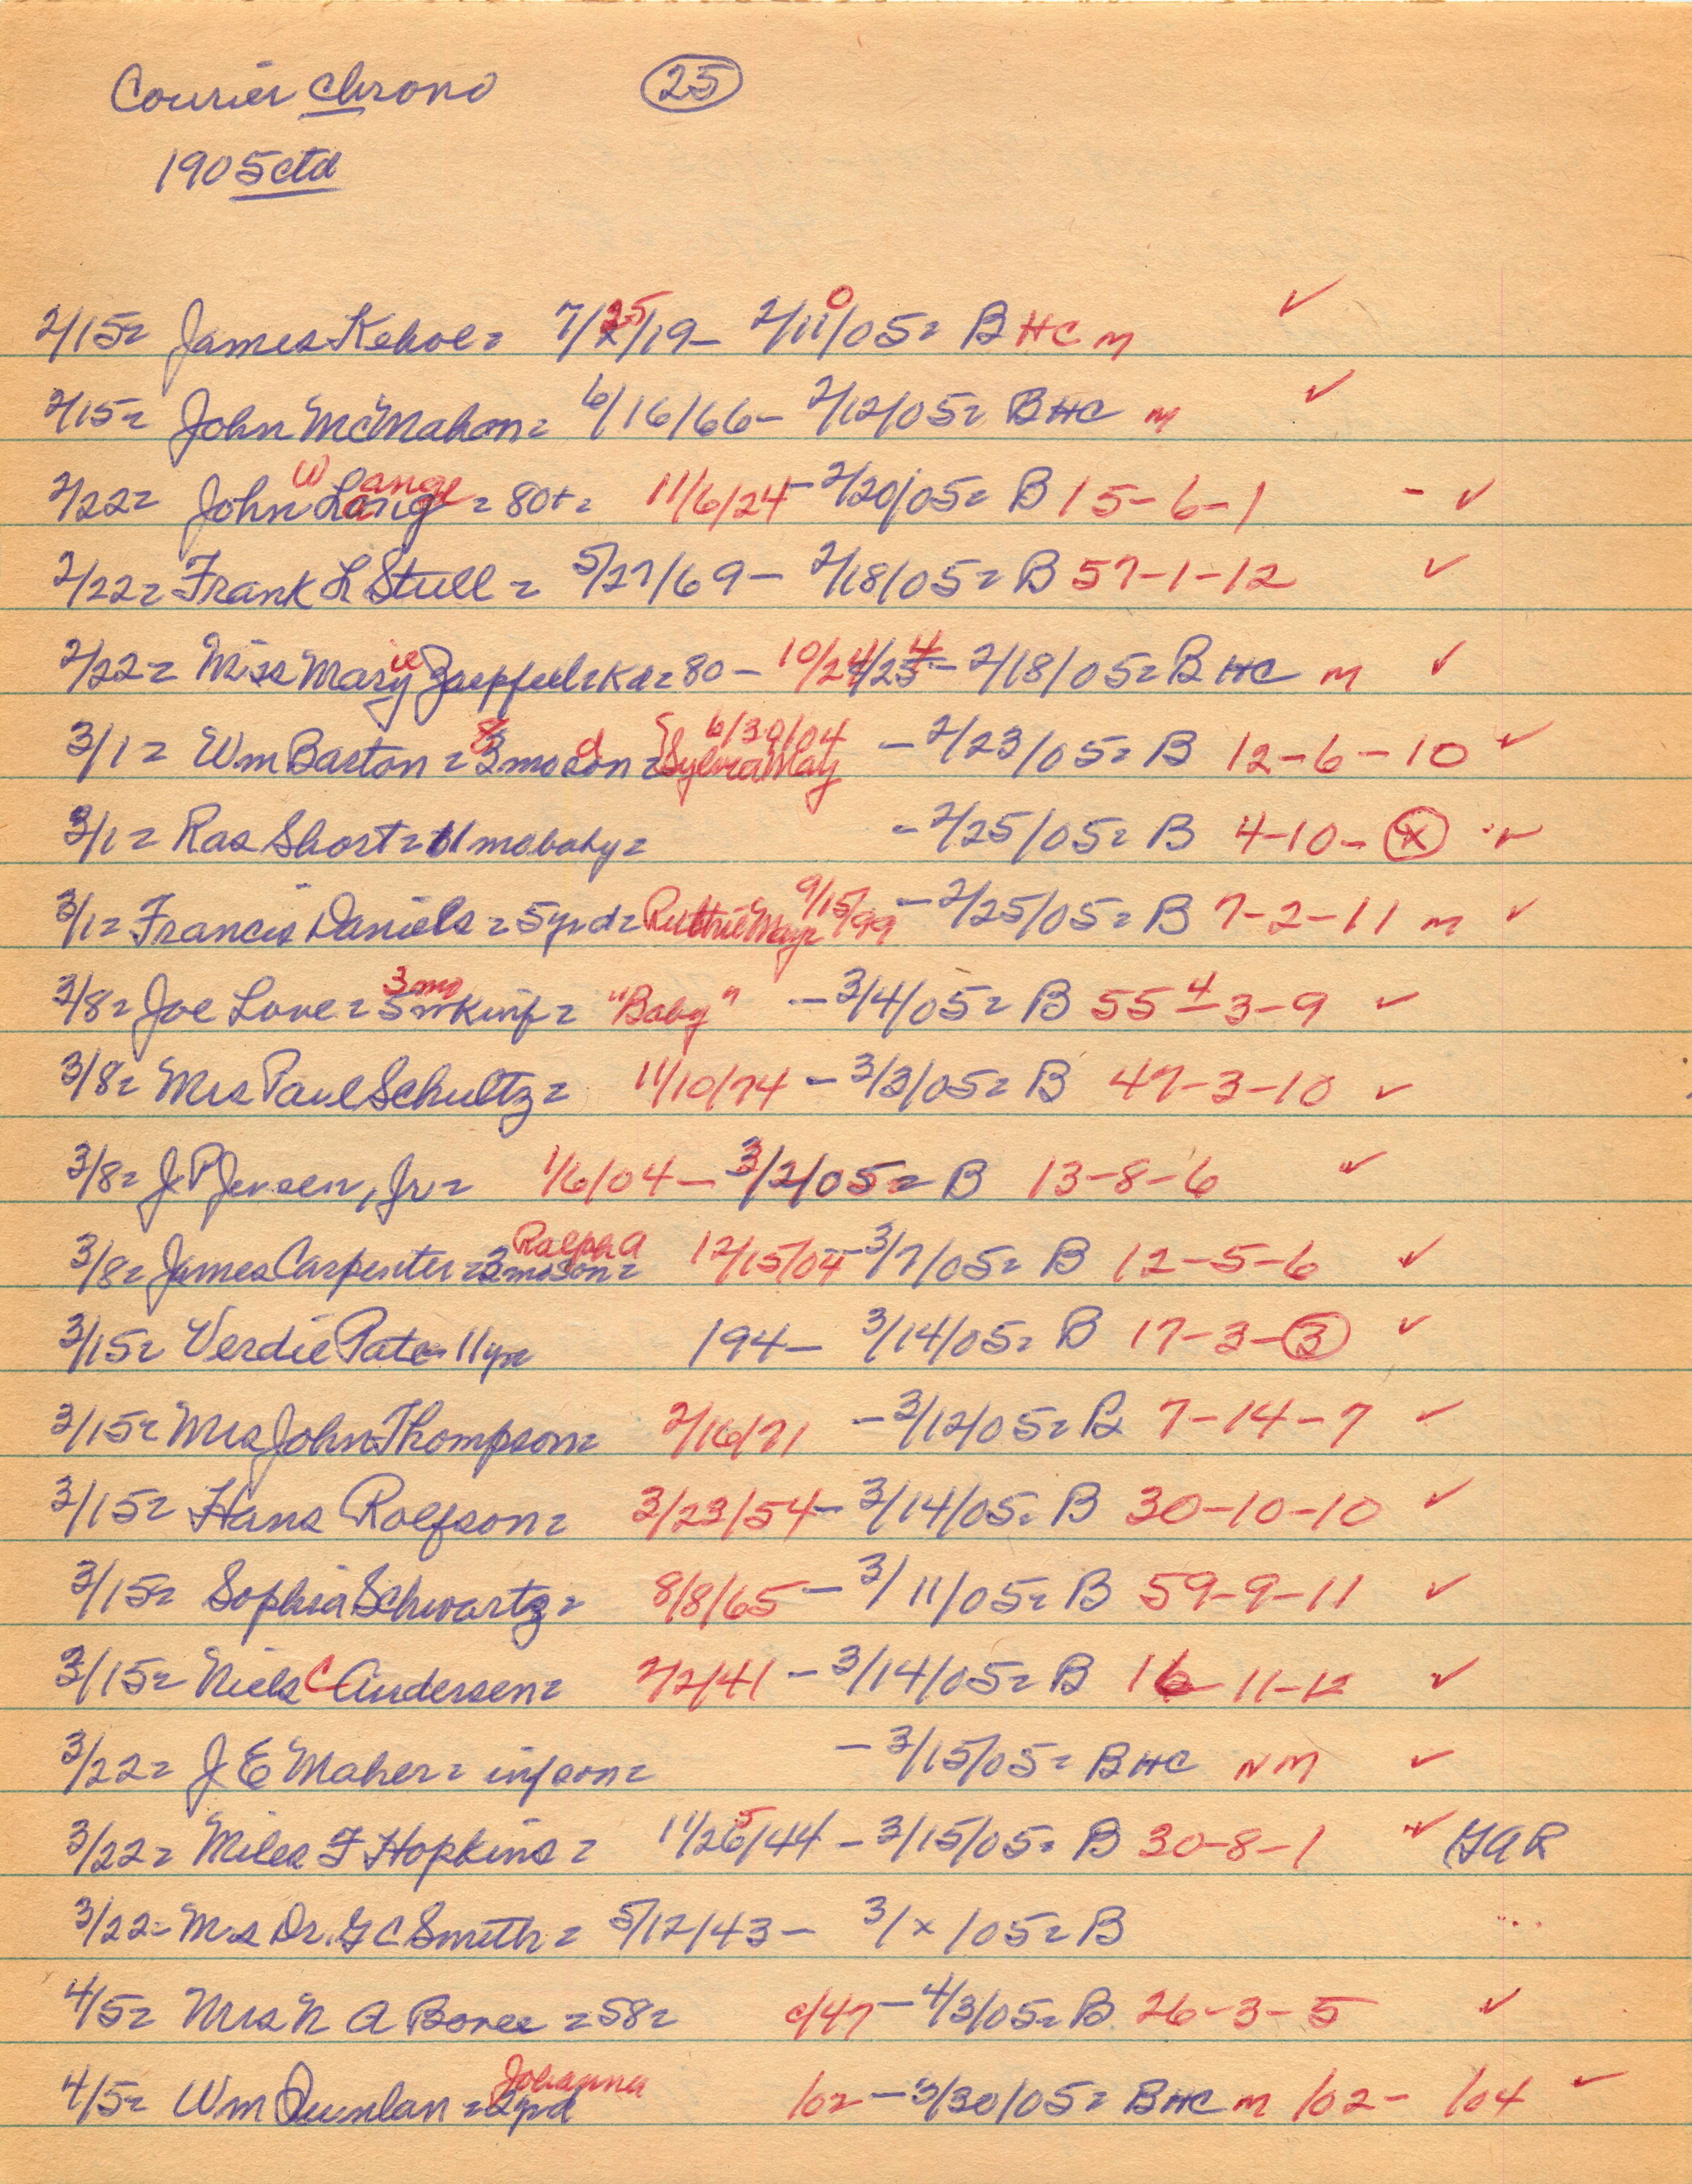 Courier Chrono (25)
1905 ctd
2/15= James Kehoe= 7/25/19- 2/11/05= B HC m ✓
0
2/15= John McMahon= 6/16/66- 2/12/05= B HC m ✓
2/22= John W Lange = 80+= 11/6/24- 2/20/05= B 15-6-1 - ✓
2/22= Frank L Stull = 5/27/69- 2/18/05= B 57-1-12 ✓
2/22= Miss Marie = 80- 10/24/24- 2/18/05= B HC m ✓
3/1= Wm Barton = 8 mo d = Sylvia May 6/30/04 -2/23/05= B 12-6-10 ✓
3/1= Ras Short= 11 mo baby= -2/25/05= B 4-10-(x) ✓
3/1= Francis Daniels = 5yr d= Ruthie May 9/15/99 -2/25/05= B 7-2-11 m ✓
3/8= Joe Love= 3mo 5 wk inf= "Baby" -3/4/05= B 55 4-3-9 ✓
3/8= Mrs Paul Schultz= 11/10/74 - 3/3/05= B 47-3-10 ✓
3/8= J P Jensen, Jr= 1/6/04- 3/2/05= B 13-8-6 ✓
3/8= James Carpenter= 3mo son= Ralph A 12/15/04-3/7/05= B 12-5-6 ✓
3/15= Verdie Pate 11yr 194- 3/14/05= B 17-3-(3) ✓
3/15= Mrs John Thompson= 2/16/71 -3/12/05= B 7-14-7 ✓
3/15= Hans Rolfson= 3/23/54- 3/14/05= B 30-10-10 ✓
3/15= Sophia Schwartz= 8/8/65- 3/11/05= B 59-9-11 ✓
3/15= Niels C Andersen= 2/2/41 - 3/14/05= B 16-11-12 ✓
3/22= J E Maher= inf son= -3/15/05= B HC NM ✓
3/22= Miles F Hopkins= 11/25/44- 3/15/05= B 30-8-1 ✓ GAR
3/22= Mrs Dr. G C Smith= 5/12/43- 3/x/05= B
4/5= Mrs N A Boree = 58= c/47- 4/3/05= B 26-3-5 ✓
4/5= Wm Quinlan = 2yr d Johanna /02-3/30/05= B HC m /02- /04 ✓